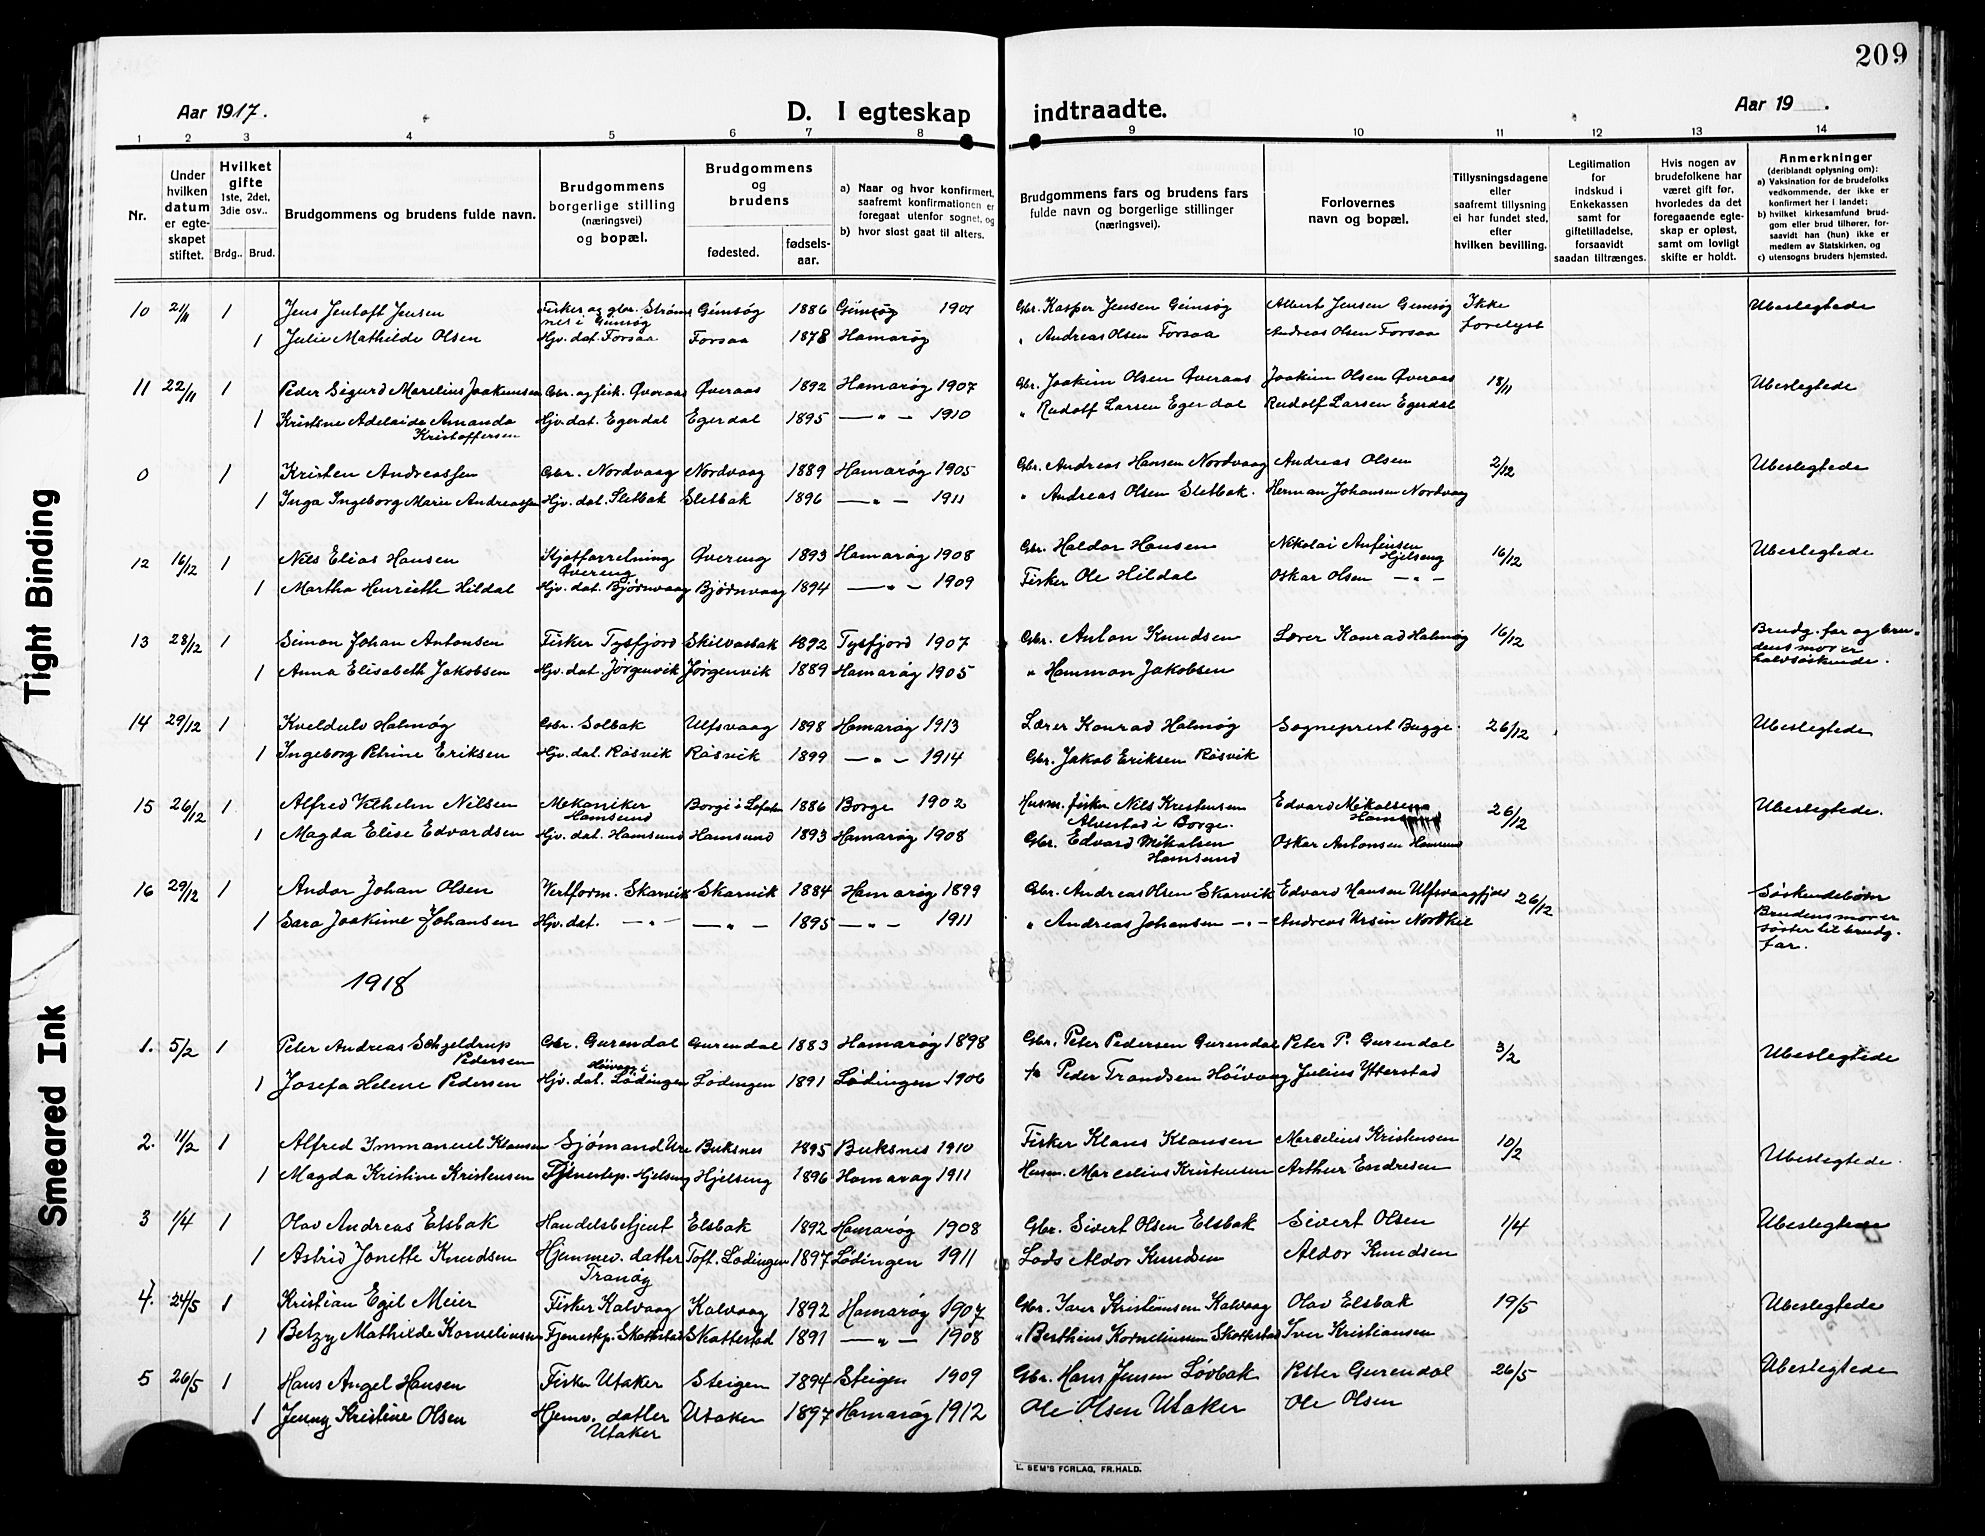 209
Aar 1917.
D. I egteskap indtraadte.
Aar 19 .
1 2 3 4 5 6 7 8 9 10 11 12 13 14
Nr.
Under hvilken datum er egteskapet stiftet.
Hvilket gifte 1ste, 2det, 3die osv..
Brdg.. Brud.
Brudgommens og brudens fulde navn.
Brudgommens borgerlige stilling (næringsvei) og bopæl.
Brudgommens og brudens
fødested. fødsels-aar.
a) Naar og hvor konfirmert, saafremt konfirmationen er foregaat utenfor sognet, og
b) hvor sidst gaat til alters.
Brudgommens fars og brudens fars fulde navn og borgerlige stillinger (næringsvei).
Forlovernes navn og bopæl.
Tillysningsdagene eller saafremt tillysning ei har fundet sted, efter hvilken bevilling.
Legitimation for indskud i Enkekassen samt for giftetilladelse, forsaavidt saadan tiltrænges.
Hvis nogen av brudefolkene har været gift før, hvorledes da det foregaaende egteskap er opløst, samt om lovligt skifte er holdt.
Anmerkninger (deriblandt oplysning om):
a) Vaksination for de brudefolks vedkommende, der ikke er konfirmert her i landet;
b) hvilket kirkesamfund brudgom eller brud tilhører, forsaavidt han (hun) ikke er medlem av Statskirken, og
c) utensogns bruders hjemsted.
10 2/11 1 Jens Jentoft Jensen Fisker og gbr. Strømnes i Gimsøg Gimsøg 1886 Gimsøg 1901 Gbr. Kasper Jensen Gimsøg Albert Jensen Gimsøg Ikke forelyst Ubeslegtede
1 Julie Mathilde Olsen Hjv. dat. Forsaa Forsaa 1878 Hamarøg " Andreas Olsen Forsaa Andreas Olsen Forsaa
11 22/11 1 Peder Sigurd Marelius Joakimsen Gbr. og fisk. Øveraas Øveraas 1892 Hamarøg 1907 Gbr. Joakim Olsen Øveraas Joakim Olsen Øveraas 18/11 Ubeslegtede
1 Kristine Adelaide Amanda Kristoffersen Hjv. dat. Egerdal Egerdal 1895 — " — 1910 " Rudolf Larsen Egerdal Rudolf Larsen Egerdal
0 1 Kristen Andreassen Gbr. Nordvaag Nordvaag 1889 Hamarøg 1905 Gbr. Andreas Hansen Nordvaag Andreas Olsen 2/12 Ubeslegtede
1 Inga Ingeborg Marie Andreassen Hjv. dat. Sletbak Sletbak 1896 — " — 1911 " Andreas Olsen Sletbak. Herman Johansen Nordvaag
12 16/12 1 Nils Elias Hansen Skjøtforretning Øvereng Øvereng 1893 Hamarøg 1908 Gbr. Haldor Hansen Nikolai Anfinsen Hjelseng 16/12 Ubeslegtede
1 Martha Henriette Hildal Hjv. dat. Bjørnvaag Bjørnvaag 1894 — " — 1909 Fisker Ole Hildal Oskar Olsen — " —
13 28/12 1 Simon Johan Antonsen Fisker Tysfjord Skilvasbak 1892 Tysfjord 1907 Gbr. Anton Knudsen Lærer Konrad Halmøg 16/12 Brudg. far og brudens mor er halvsøskende.
1 Anna Elisabeth Jakobsen Hjv. dat. Jørgenvik Jørgenvik 1889 Hamarøg 1905 " Hammon Jakobsen
14 29/12 1 Kveldulv Halmøg Gbr. Solbak Ulfsvaag 1898 Hamarøg 1913 Lærer Konrad Halmøg Sogneprest Bugge. 26/12 Ubeslegtede
1 Ingeborg Petrine Eriksen Hjv. dat. Røsvik Røsvik 1899 — " — 1914 Gbr. Jakob Eriksen Røsvik
15 26/12 1 Alfred Vilhelm Nilsen Mekaniker Hamsund Borge i Lofoten 1886 Borge 1902 Husm. fisker Nils Kristensen Alvestad i Borge. Edvard Mikalsen Hamsund 26/12 Ubeslegtede.
1 Magda Elise Edvardsen Hjv. dat. Hamsund Hamsund 1893 Hamarøg 1908 Gbr. Edvard Mikalsen Hamsund Oskar Antonsen Hamsund
16 29/12 1 Andor Johan Olsen Verftform. Skarvik Skarvik 1884 Hamarøg 1899 Gbr. Andreas Olsen Skarvik Edvard Hansen Ulfsvaagfjeld 26/12 Søskendebørn Brudens mor er søster til brudg. far.
1 Sara Joakime Johansen Hjv. dat. — " — — " — 1895 — " — 1911 " Andreas Johansen — " — Andreas Ursin Nordkil
1918
1. 5/2 1 Peter Andreas Schjeldrup Pedersen Gbr. Gurendal Gurendal 1883 Hamarøg 1898 Gbr. Peter Pedersen Gurendal Peter P. Gurendal 3/2 Ubeslegtede
1 Josefa Helene Pedersen Hjv. dat. Høivaag i Lødingen Lødingen 1891 Lødingen 1906 Peder Trondsen Høivaag Julius Ytterstad
2. 11/2 1 Alfred Immanuel Klausen Sjømand Ure Buksnes 1895 Buksnes 1910 Fisker Klaus Klausen Marselius Kristensen 10/2 Ubeslegtede.
1 Magda Kristine Kristensen Tjenestep. Hjelseng Hjelseng 1896 Hamarøg 1911 Husm. Marselius Kristensen Arthur Endresen
3 1/4 1 Olav Andreas Elsbak Handelsbetjent Elsbak 1892 Hamarøg 1908 Gbr. Sivert Olsen Elsbak Sivert Olsen 1/4 Ubeslegtede
1 Astrid Jonette Knudsen Hjemmev. datter Tranøg Toft. Lødingen 1897 Lødingen 1911 Lods Aldor Knudsen Aldor Knudsen
4. 24/5 1 Kristian Egil Meier Fisker Kalvaag Kalvaag 1892 Hamarøg 1907 Gbr. Iver Kristiansen Kalvaag Olav Elsbak 19/5 Ubeslegtede
1 Betzy Mathilde Korneliussen Tjenestep. Skottestad Skottestad 1891 — " — 1908 " Berthius Korneliussen Skottestad Iver Kristiansen
5 26/5 1 Hans Angel Hansen Fisker Utaker Steigen 1894 Steigen 1909 Gbr. Hans Jensen Løvbak Petter Gurendal 26/5 Ubeslegtede
1 Jenny Kristine Olsen Hjemv. datter Utaker Utaker 1897 Hamarøg 1912 Ole Olsen Utaker Ole Olsen
E. SEM'S FORLAG, FR.HALD.
Tight Binding
Smeared Ink